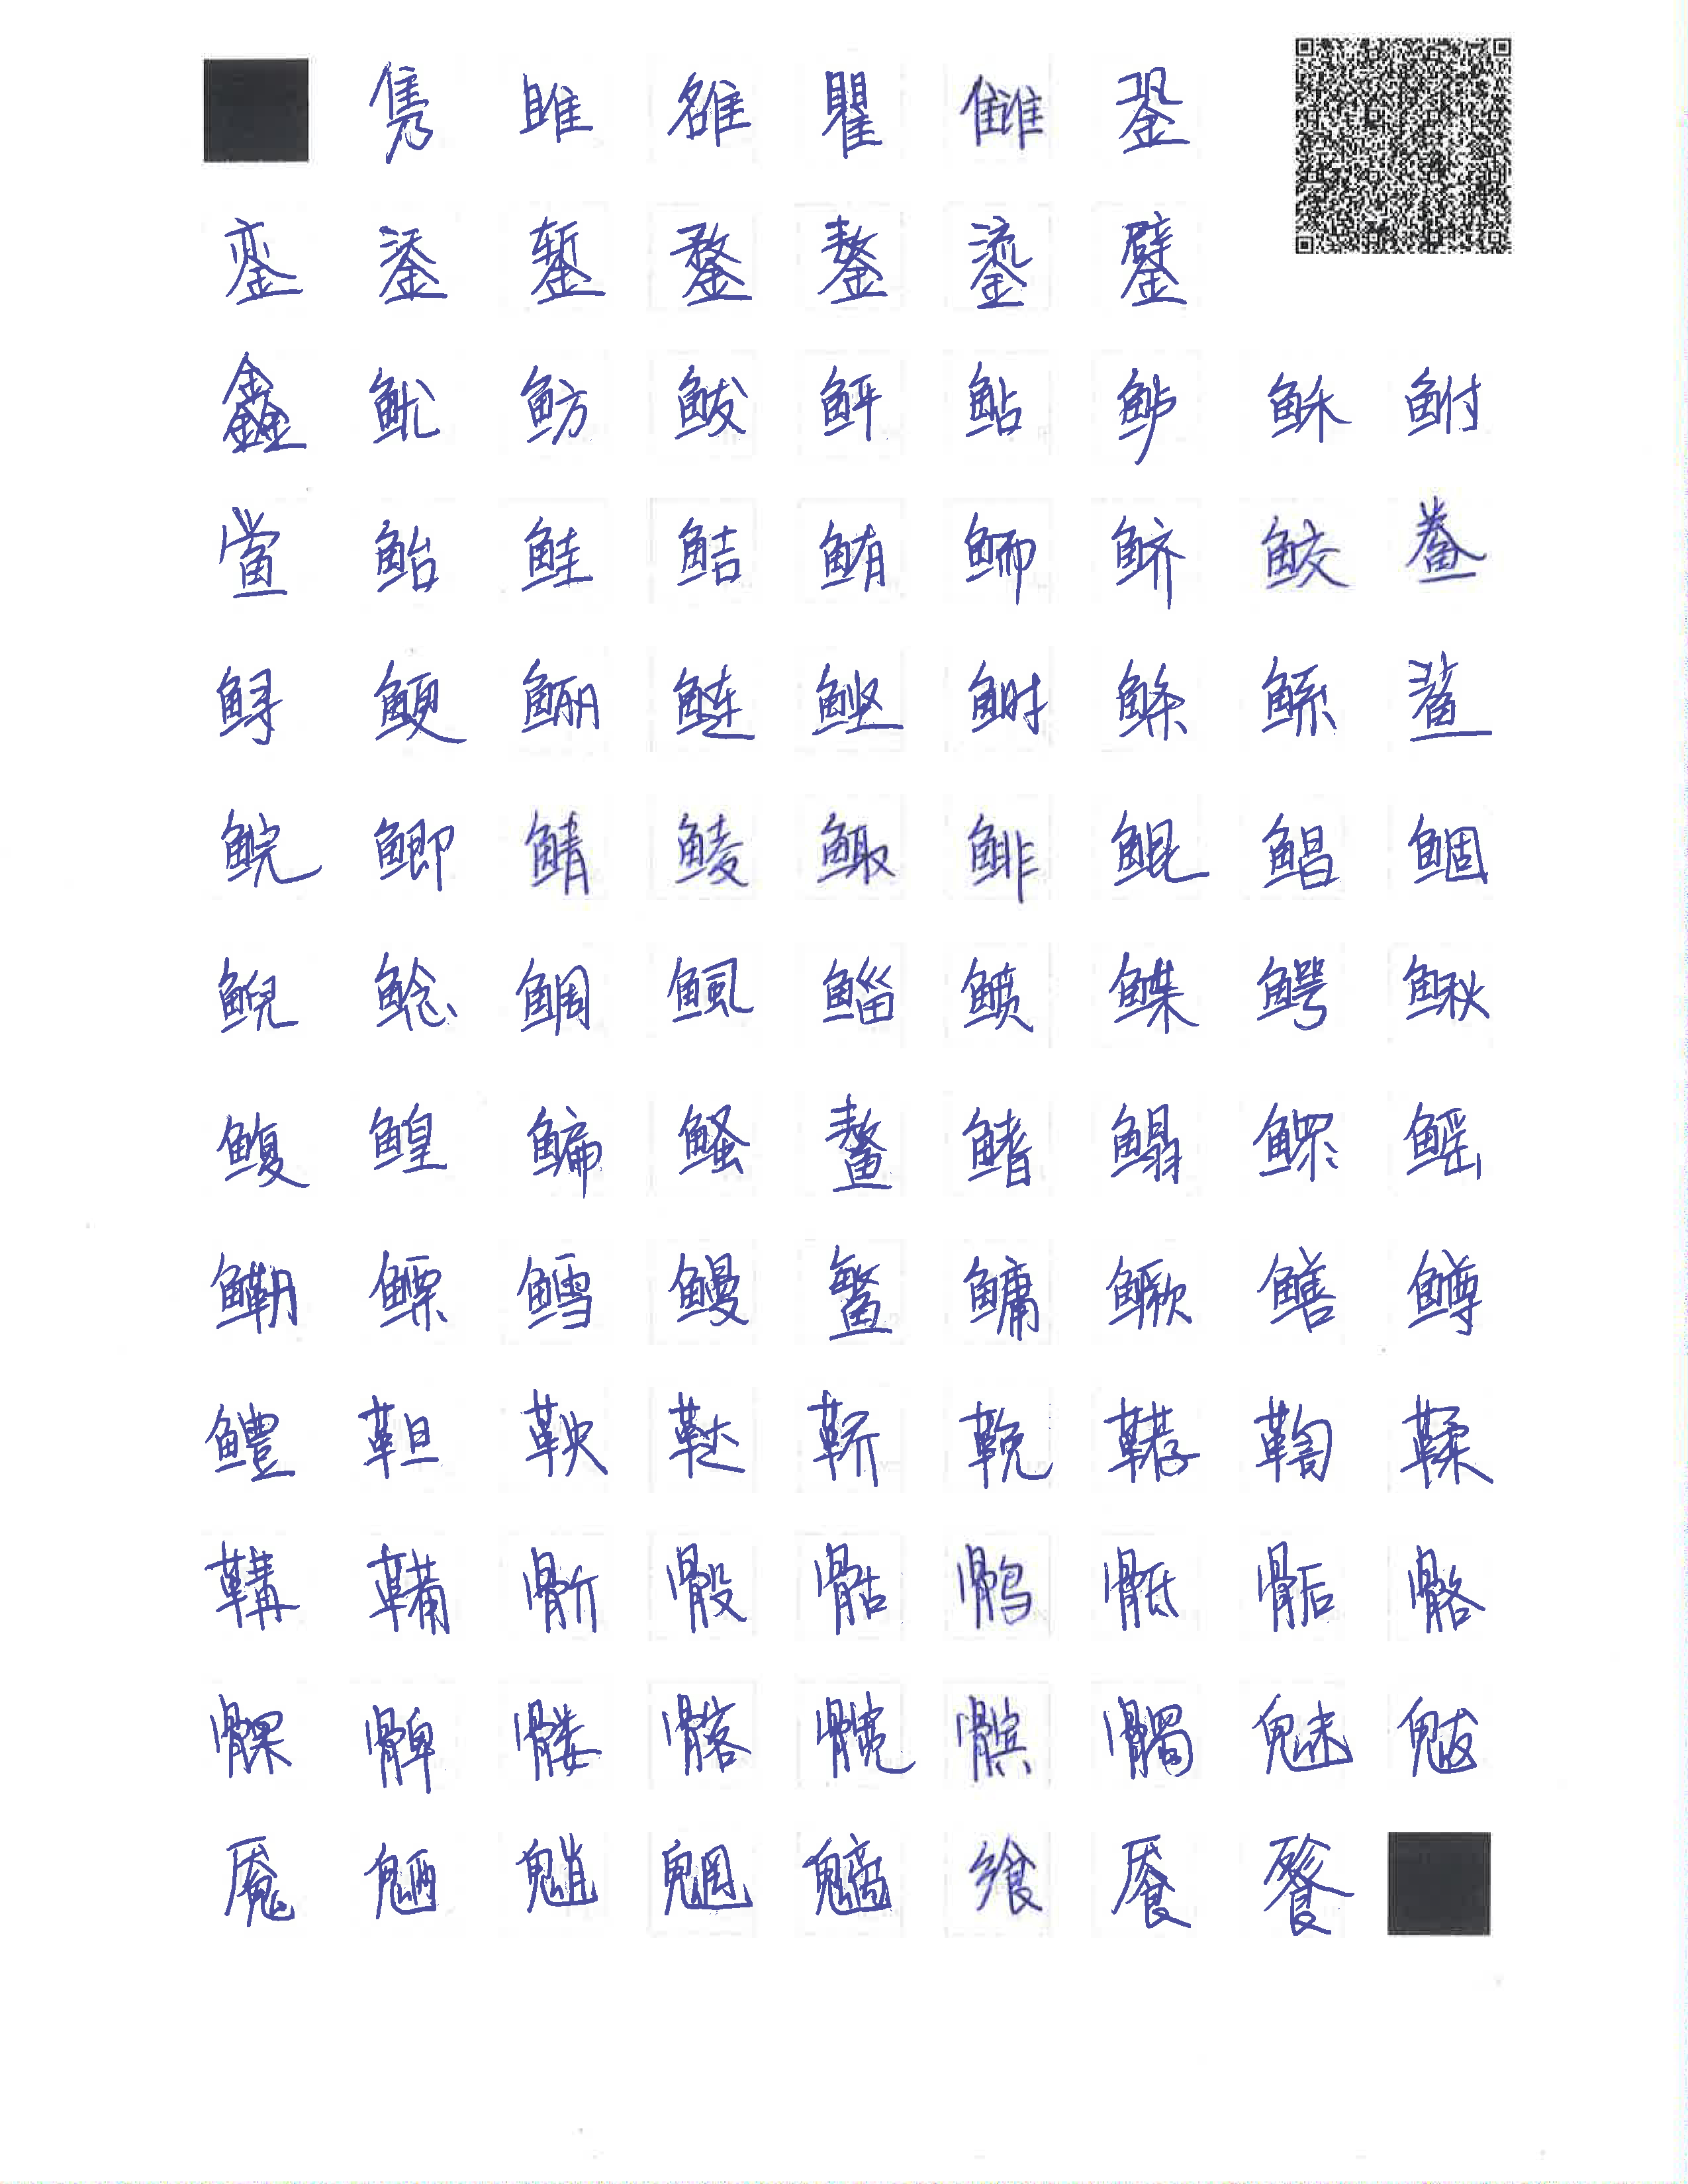 隽雎雒瞿雠銎
銮鋈錾鍪鏊鎏鐾
鑫鱿鲂鲅鲆鲇鲈稣鲋
鲎鲐鲑鲒鲔鲕鲚鲛鲞
鲟鲠鲡鲢鲣鲥鲦鲧鲨
鲩鲫鲭鲮鲰鲱鲲鲳鲴
鲵鲶鲷鲺鲻鲼鲽鳄鳅
鳆鳇鳊鳋鳌鳍鳎鳏鳐
鳓鳔鳕鳗鳘鳙鳜鳝鳟
鳢靼鞅鞑鞒鞔鞯鞫鞣
鞲鞴骱骰骷鹘骶骺骼
髁髀髅髂髋髌髑魅魃
魇魉魈魍魑飨餍餮